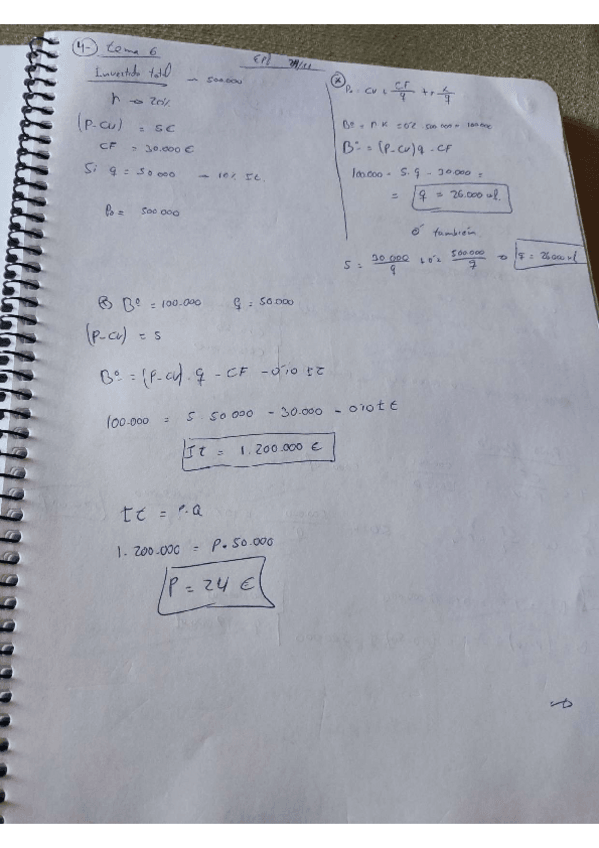 4- tema 6
EPD
Invertido total → 500.000
r → 20%
(P-Cu) = 5€
CF = 30.000 €
Si q = 50000 → 10% It.
500.000
A P = Cu + CF/q + r K/q
Bº = r K = 0'2 · 500 000 = 100.000
Bº = (P-Cu)q - CF
100.000 = 5·q - 30.000 =
= q = 26.000 ud.
ó también
5 = 30 000/q + 0'2 500 000/q → q = 26000 ud
B Bº = 100.000 q = 50.000
(P-Cu) = 5
Bº = (P-Cu)·q - CF - 0'10 It
100.000 = 5 · 50 000 - 30.000 - 0'10 It
It = 1.200.000 €
It = P·Q
1.200.000 = P·50.000
P = 24 €